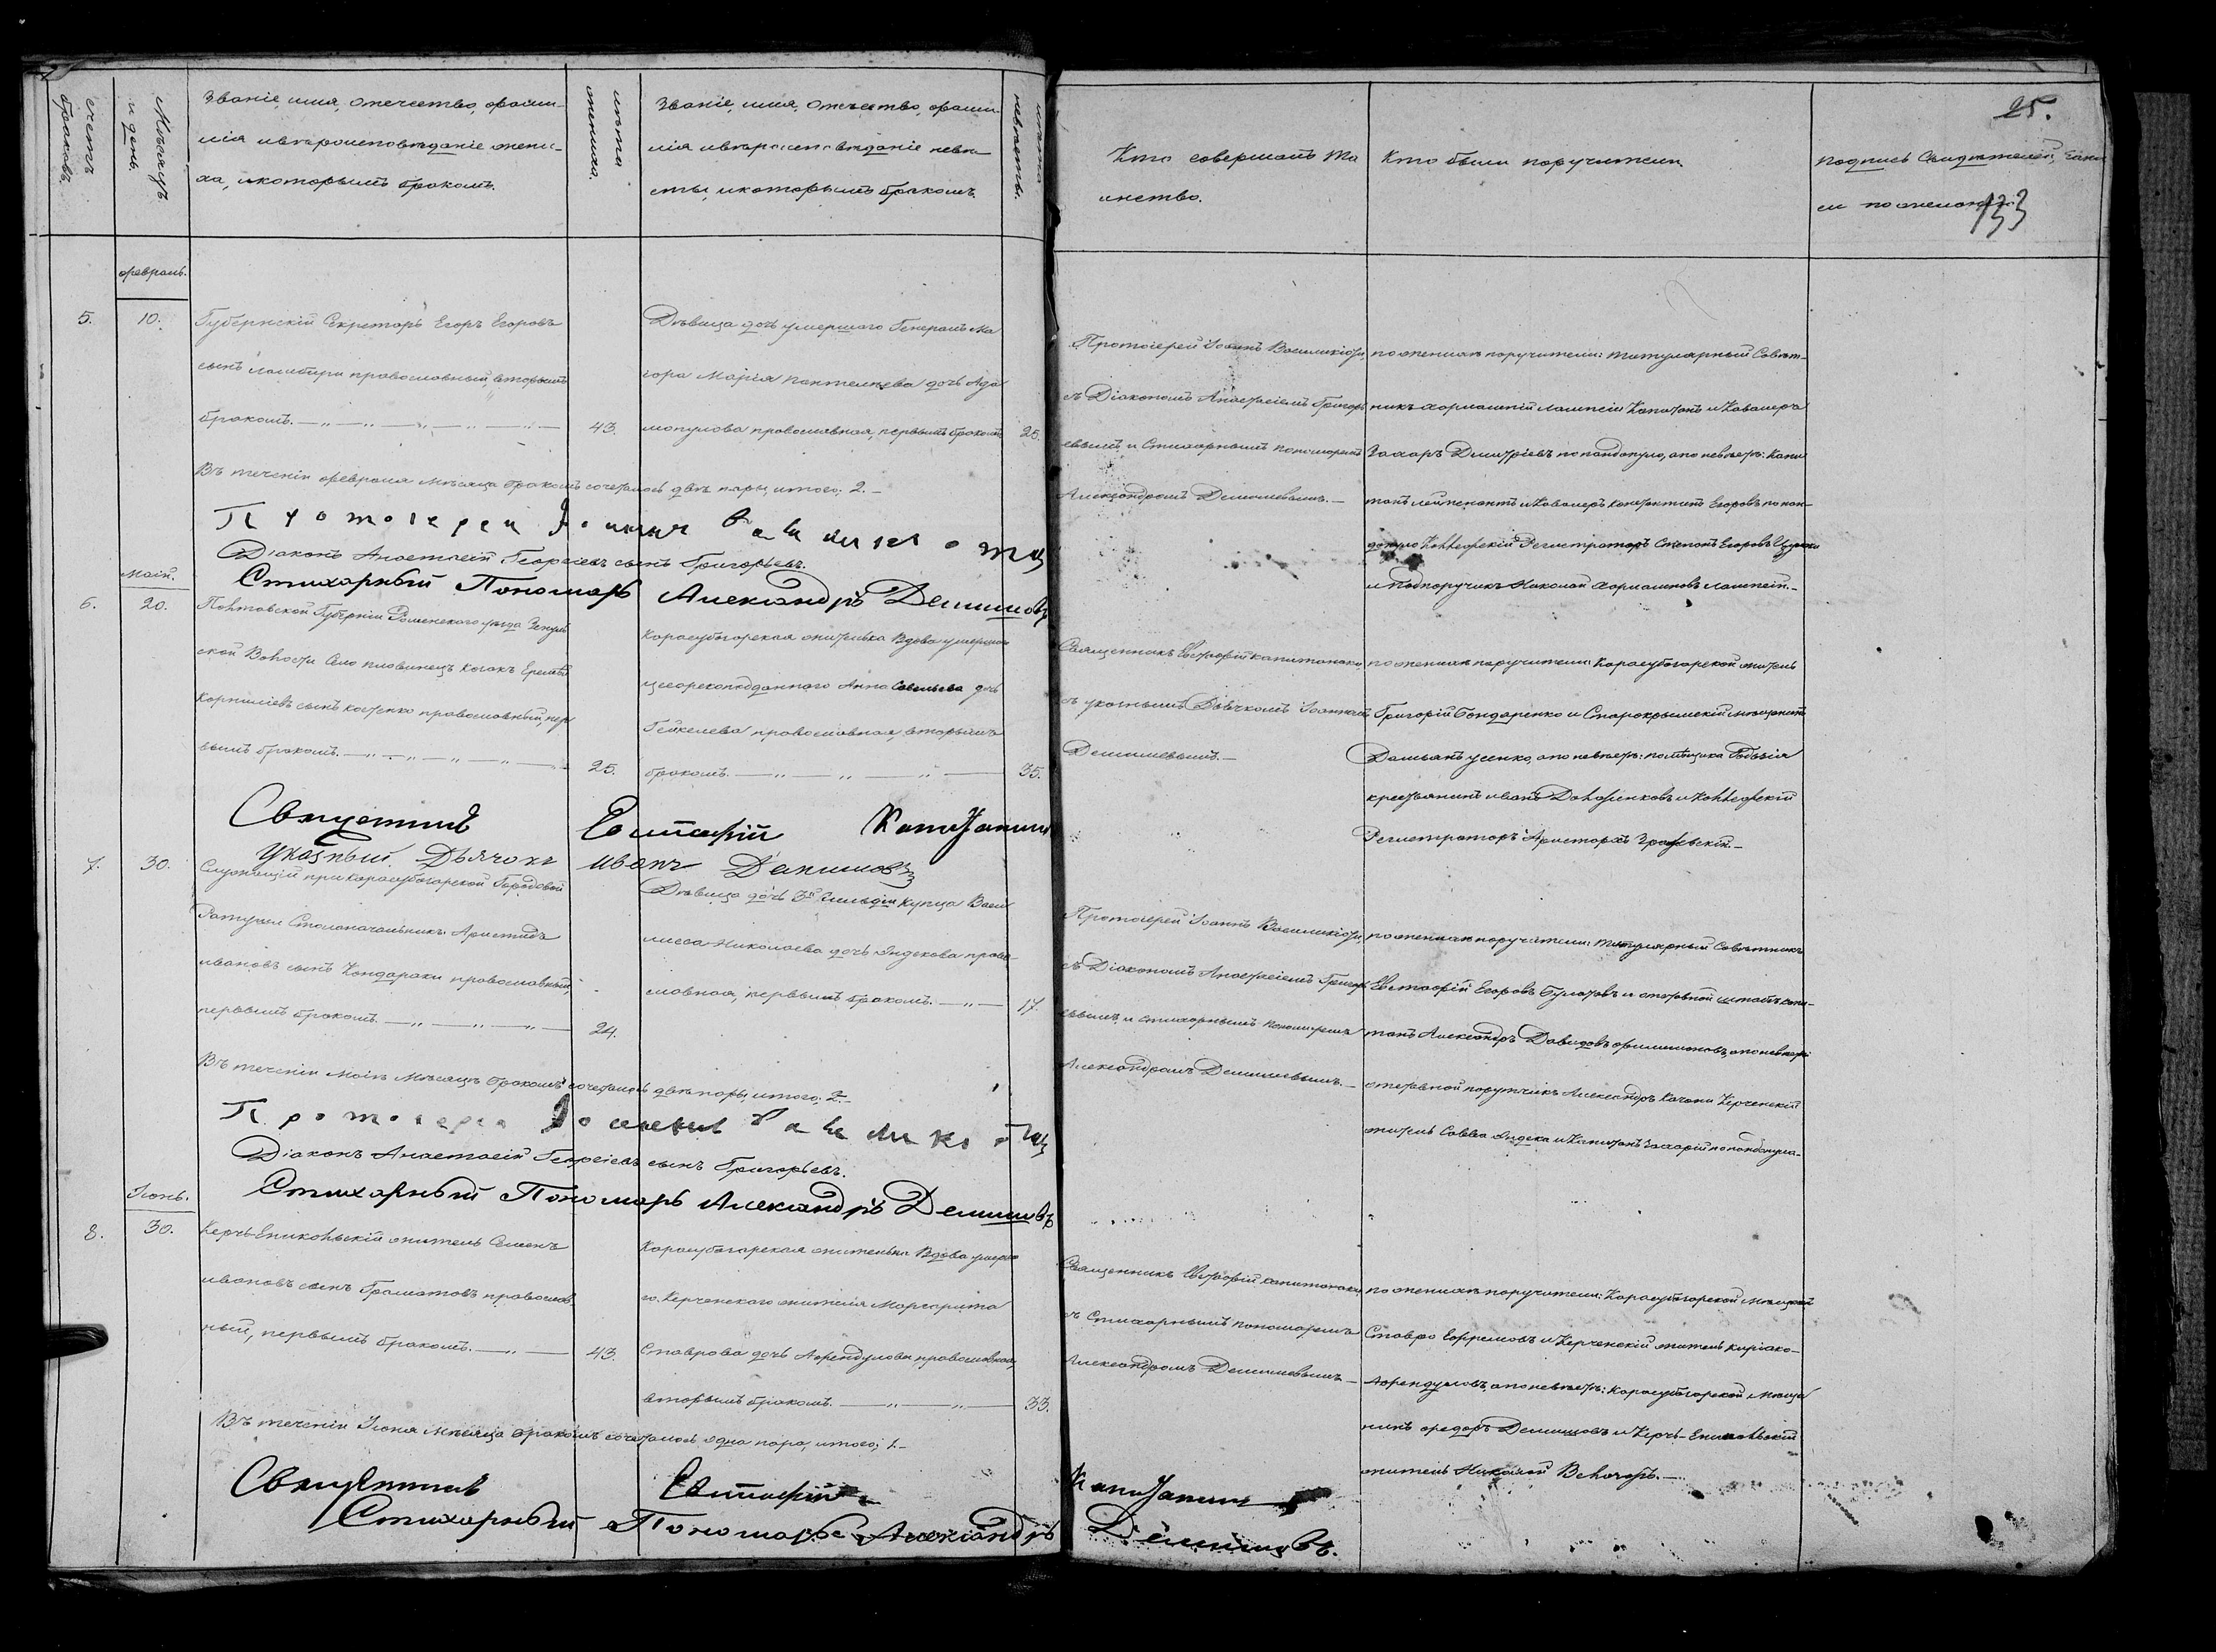 25.
133
счетъ браковъ.
Мѣсяцъ и день.
Званіе, имя, отечество, фами-
лія и вѣроисповѣданіе жени-
ха, и которымъ бракомъ.
лѣта жениха.
Званіе, имя, отечество, фами-
лія и вѣроисповѣданіе невѣ-
сты, и которымъ бракомъ.
лѣта невѣсты.
Кто совершалъ Та
инство.
Кто были поручители
подпись Свидѣтелей,
по желанію
февраль.
5.
10.
Губернскій Секретарь Егоръ Егоровъ
сынъ православный, вторымъ
бракомъ.
43.
Дѣвица дочь умершаго Генералъ Ма
іора Марія Пантелеева дочь Ада
мопулова православная, первымъ бракомъ
Протоіерей Іоаннъ
съ Діакономъ Анастасіемъ Григорь
евымъ и Стихарнымъ пономаремъ
Александромъ Демишевымъ.
по женихѣ поручители: титулярный Совѣт-
никъ Капитанъ и Кавалеръ
Захаръ Дмитріевъ попандопуло, а по невѣстѣ: Капи
танъ лейтенантъ и Кавалеръ Константинъ Егоровъ попан-
допуло Коллежскій Регистраторъ Степанъ Егоровъ
и Подпоручикъ Николай
Въ теченіи февраля мѣсяца бракомъ сочеталось двѣ пары, итого, 2.
Протоіерей
Діаконъ Анастасій Георгіевъ сынъ Григорьевъ.
Стихарный Пономарь Александръ Демишовъ
Маій.
6.
20.
Полтавской Губерніи Роменскаго уѣзда
ской Волости Село Казакъ Еремѣй
Корниліевъ сынъ Костенко православный, пер
вымъ бракомъ.
25.
Карасубазарская жителька Вдова умершаго
Анна Савельева дочь
православная, вторымъ
бракомъ.
35.
Священникъ Евстафій
съ указнымъ Дьячкомъ Іоанномъ
Демишевымъ.
по женихѣ поручители: Карасубазарской житель
Григорій Бондаренко и Старокрымскій мѣщанинъ
Демьянъ усенко, а по невѣстѣ: помѣщика
крестьянинъ иванъ и Коллежскій
Регистраторъ Аристархъ
Священникъ Евстафій
Указный Дьячокъ Иванъ Демишовъ
7.
30.
Служащій при Карасубазарской Городовой
Ратушѣ Столоначальникъ Аристидъ
ивановъ сынъ Кондараки православный,
первымъ бракомъ.
24.
Дѣвица дочь 3й гильдіи купца Васи
лисса Николаева дочь Яндекова право-
славная, первымъ бракомъ.
17.
Протоіерей Іоаннъ
съ Діакономъ Анастасіемъ Григорь
евымъ, и стихарнымъ пономаремъ
Александромъ Демишевымъ.
по женихѣ поручители: титулярный Совѣтникъ
Евстафій Егоровъ Булатовъ и отставной штабъ капи-
танъ Александръ Давидовъ филимоновъ, а по невѣстѣ
отставной порутчикъ Александръ Керченскій
житель Савва и Капитанъ Захарій попандопуло.
Въ теченіи Маія мѣсяца бракомъ сочеталось двѣ пары, итого, 2.
Протоіерей
Діаконъ Анастасій Георгіевъ сынъ Григорьевъ.
Стихарный Пономарь Александръ Демишовъ
Іюнь.
8.
30.
Керчь-Еникольскій житель Семенъ
ивановъ сынъ Граматовъ православ
ный, первымъ бракомъ.
43.
Карасубазарская жителька Вдова умерша
го Керченскаго жителя Маргарита
Ставрова дочь православная,
вторымъ бракомъ.
33.
Священникъ Евстафій
съ Стихарнымъ пономаремъ
Александромъ Демишевымъ
по женихѣ поручители: Карасубазарской мѣщанинъ
Ставро Ефремовъ и Керченскій житель Киріако
а по невѣстѣ: Карасубазарской мѣща
нинъ федоръ Демишовъ и Керчь-Еникольскій
житель Николай
Въ теченіи Іюня мѣсяца бракомъ сочеталось одна пара, итого, 1.
Священникъ Евстафій
Стихарный Пономарь Александръ Демишовъ.